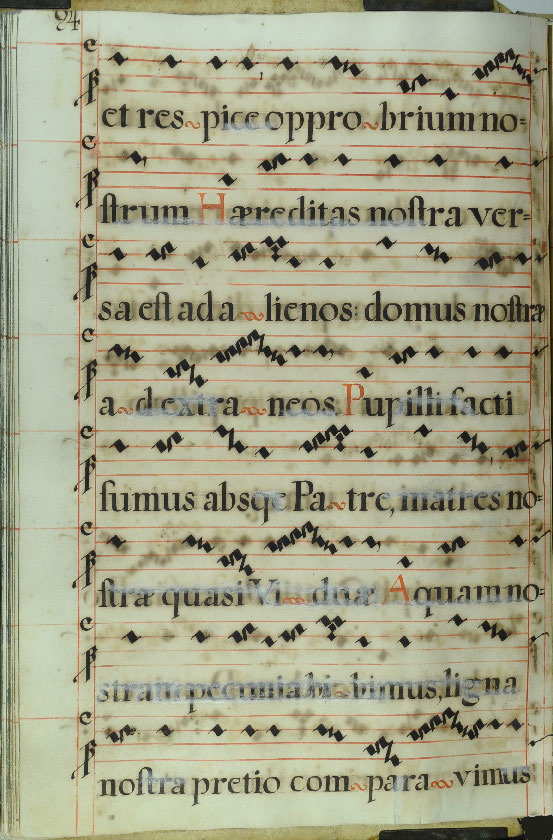 24
et res~pice oppro~brium no=
ſtrum Hæreditas noſtra ver=
sa eſt ad a~lienos: domus noſtra
a~d extra~neos. Pupilli facti
ſumus absqe Pa~tre, matres no=
ſtræ quasi Vi~duæ Aquam no=
stram pecunia bi~bimus, ligna
noſtra pretio com~para~vimus